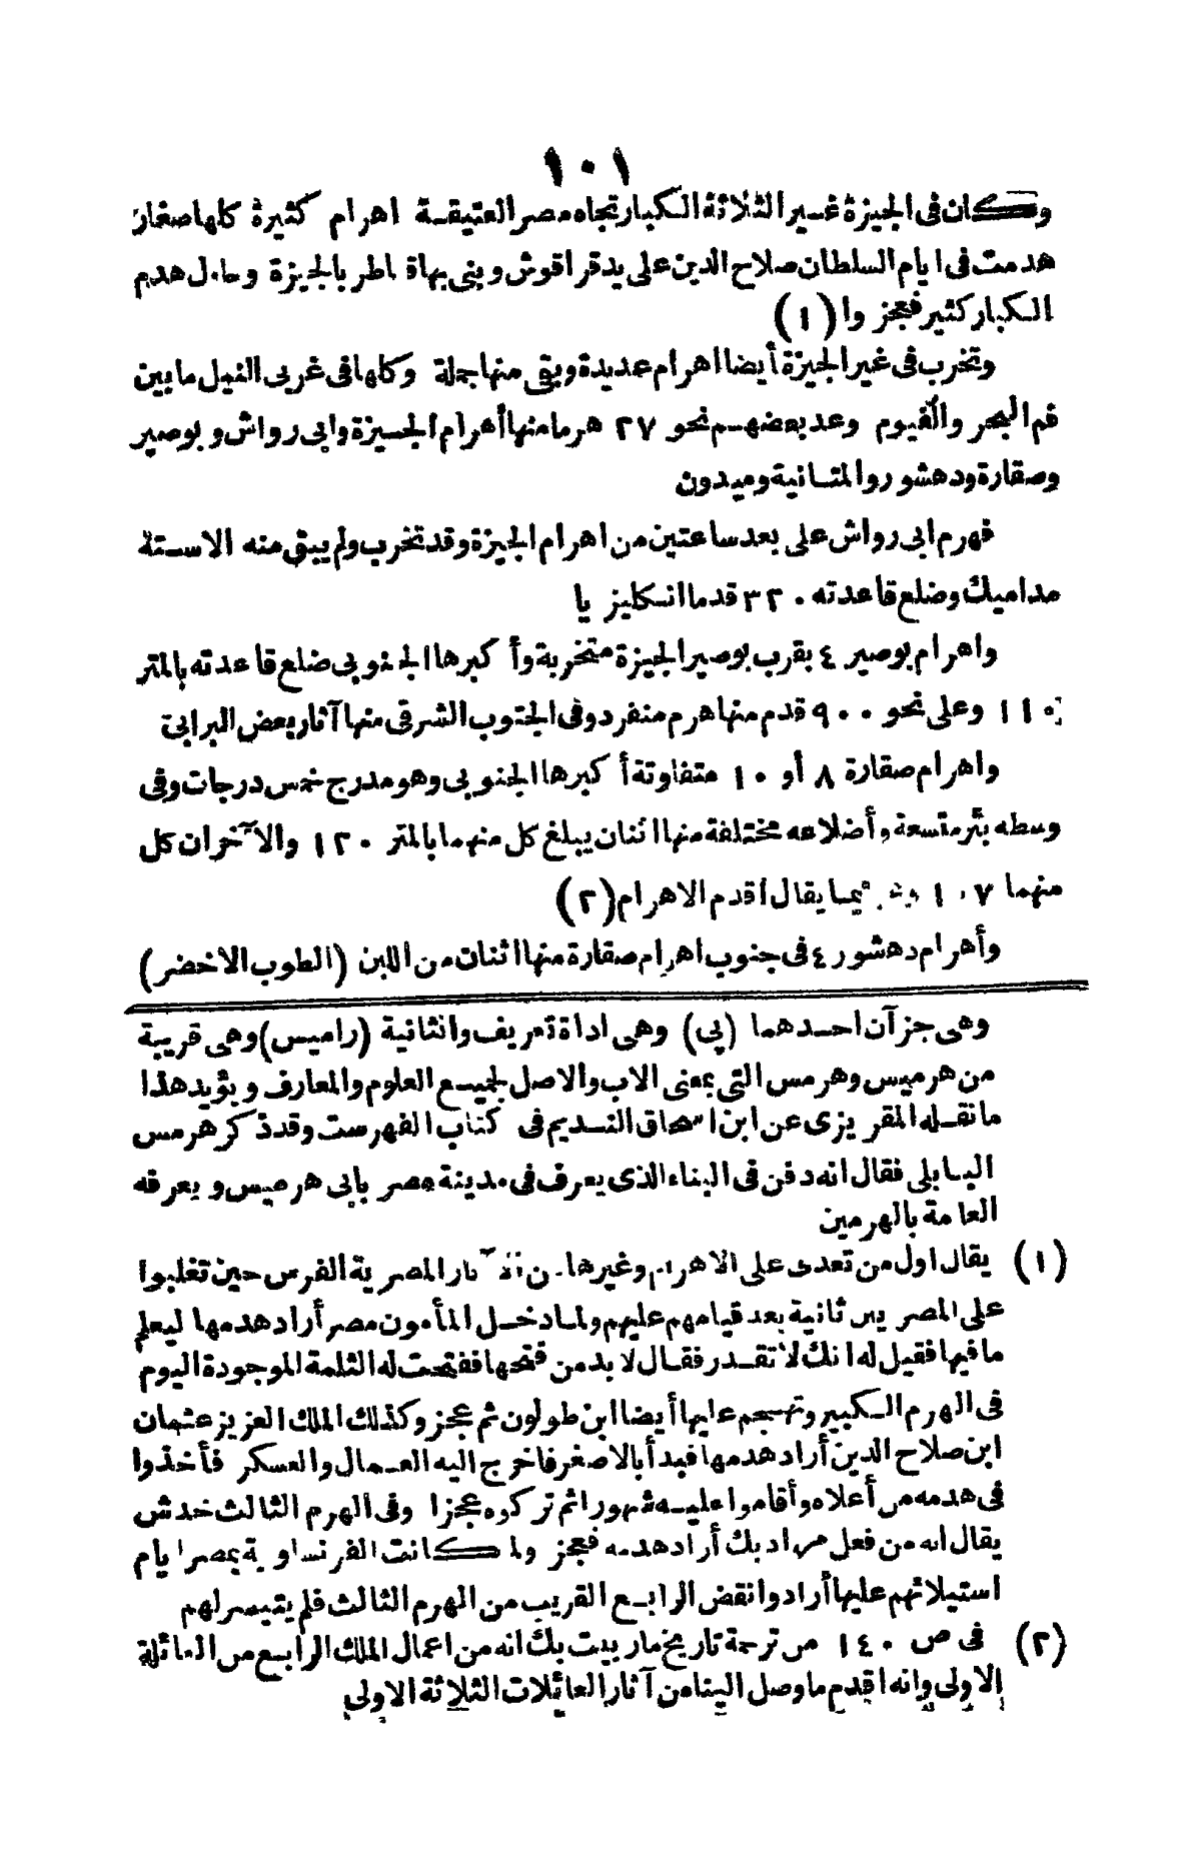 ١٠١
وكان فى الجيزة غير الثلاثة الكبار تجاه مصر العتيقة اهرام كثيرة كلها صغار
هدمت فى ايام السلطان صلاح الدين على يد قراقوش وبنى بها قناطر بالجيزة وحاول هدم
الكبار كثير فعجزوا (١)
وتخرب فى غير الجيزة أيضا اهرام عديدة وبقى منها جملة وكلها فى غربى النيل ما بين
فم البحر والفيوم وعد بعضهم نحو ٢٧ هرما منها أهرام الجيزة وابى رواش وبوصير
وصقارة ودهشور والمتانية وميدون
فهرم ابى رواش على بعد ساعتين من اهرام الجيزة وقد تخرب ولم يبق منه الا ستة
مداميك وضلع قاعدته ٣٢٠ قدما انكليزيا
واهرام بوصير ٤ بقرب بوصير الجيزة متخربة وأكبرها الجنوبى ضلع قاعدته بالمتر
١١٠ وعلى نحو ٩٠٠ قدم منها هرم منفرد وفى الجنوب الشرقى منها آثار بعض البرابى
واهرام صقارة ٨ أو ١٠ متفاوتة أكبرها الجنوبى وهو مدرج خمس درجات وفى
وسطه بئر متسعة وأضلاعه مختلفة منها اثنان يبلغ كل منهما بالمتر ١٢٠ والآخران كل
منهما ١٠٧ فيما يقال أقدم الاهرام (٢)
وأهرام دهشور ٤ فى جنوب اهرام صقارة منها اثنات من اللبن (الطوب الاخضر)
وهى جزآن احدهما (پي) وهى اداة تعريف والثانية (راميس) وهى قريبة
من هرميس وهرمس التى بمعنى الاب والاصل لجميع العلوم والمعارف ويؤيد هذا
ما نقله المقريزى عن ابن اسحاق النديم فى كتاب الفهرست وقد ذكر هرمس
البابلى فقال انه دفن فى البناء الذى يعرف فى مدينة مصر بابى هرميس ويعرفه
العامة بالهرمين
(١) يقال اول من تعدى على الاهرام وغيرها من الآثار المصرية الفرس حين تغلبوا
على المصريين ثانية بعد قيامهم عليهم ولما دخل المأمون مصر أراد هدمها ليعلم
ما فيها فقيل له انك لا تقدر فقال لا بد من فتحها ففتحت له الثلمة الموجودة اليوم
فى الهرم الكبير وتهجم عليها أيضا ابن طولون ثم عجز وكذلك الملك العزيز عثمان
ابن صلاح الدين أراد هدمها فبدأ بالاصغر فاخرج اليه العمال والعسكر فأخذوا
فى هدمه من أعلاه وأقاموا عليه شهورا ثم تركوه عجزا وفى الهرم الثالث خدش
يقال انه من فعل مراد بك أراد هدمه فعجز ولما كانت الفرنساوية بمصر ايام
استيلائهم عليها أرادوا نقض الرابع القريب من الهرم الثالث فلم يتيسر لهم
(٢) فى ص ١٤٠ من ترجمة تاريخ ماربيت بك انه من اعمال الملك الرابع من العائلة
الاولى وانه اقدم ما وصل الينا من آثار العائلات الثلاثة الاولى